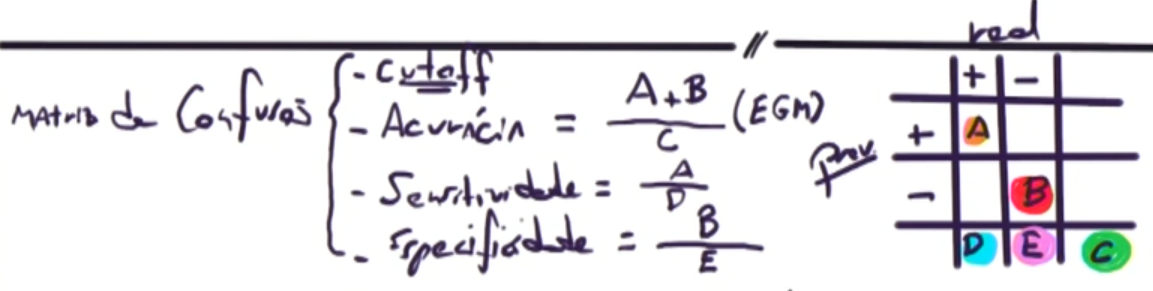 real
MAtriz de Confusão
- Cutoff
- Acurácia = A+B / C (EGM)
- Sensitividade = A / D
- Especificidade = B / E
+ -
Prev
+ A
- B
D E C